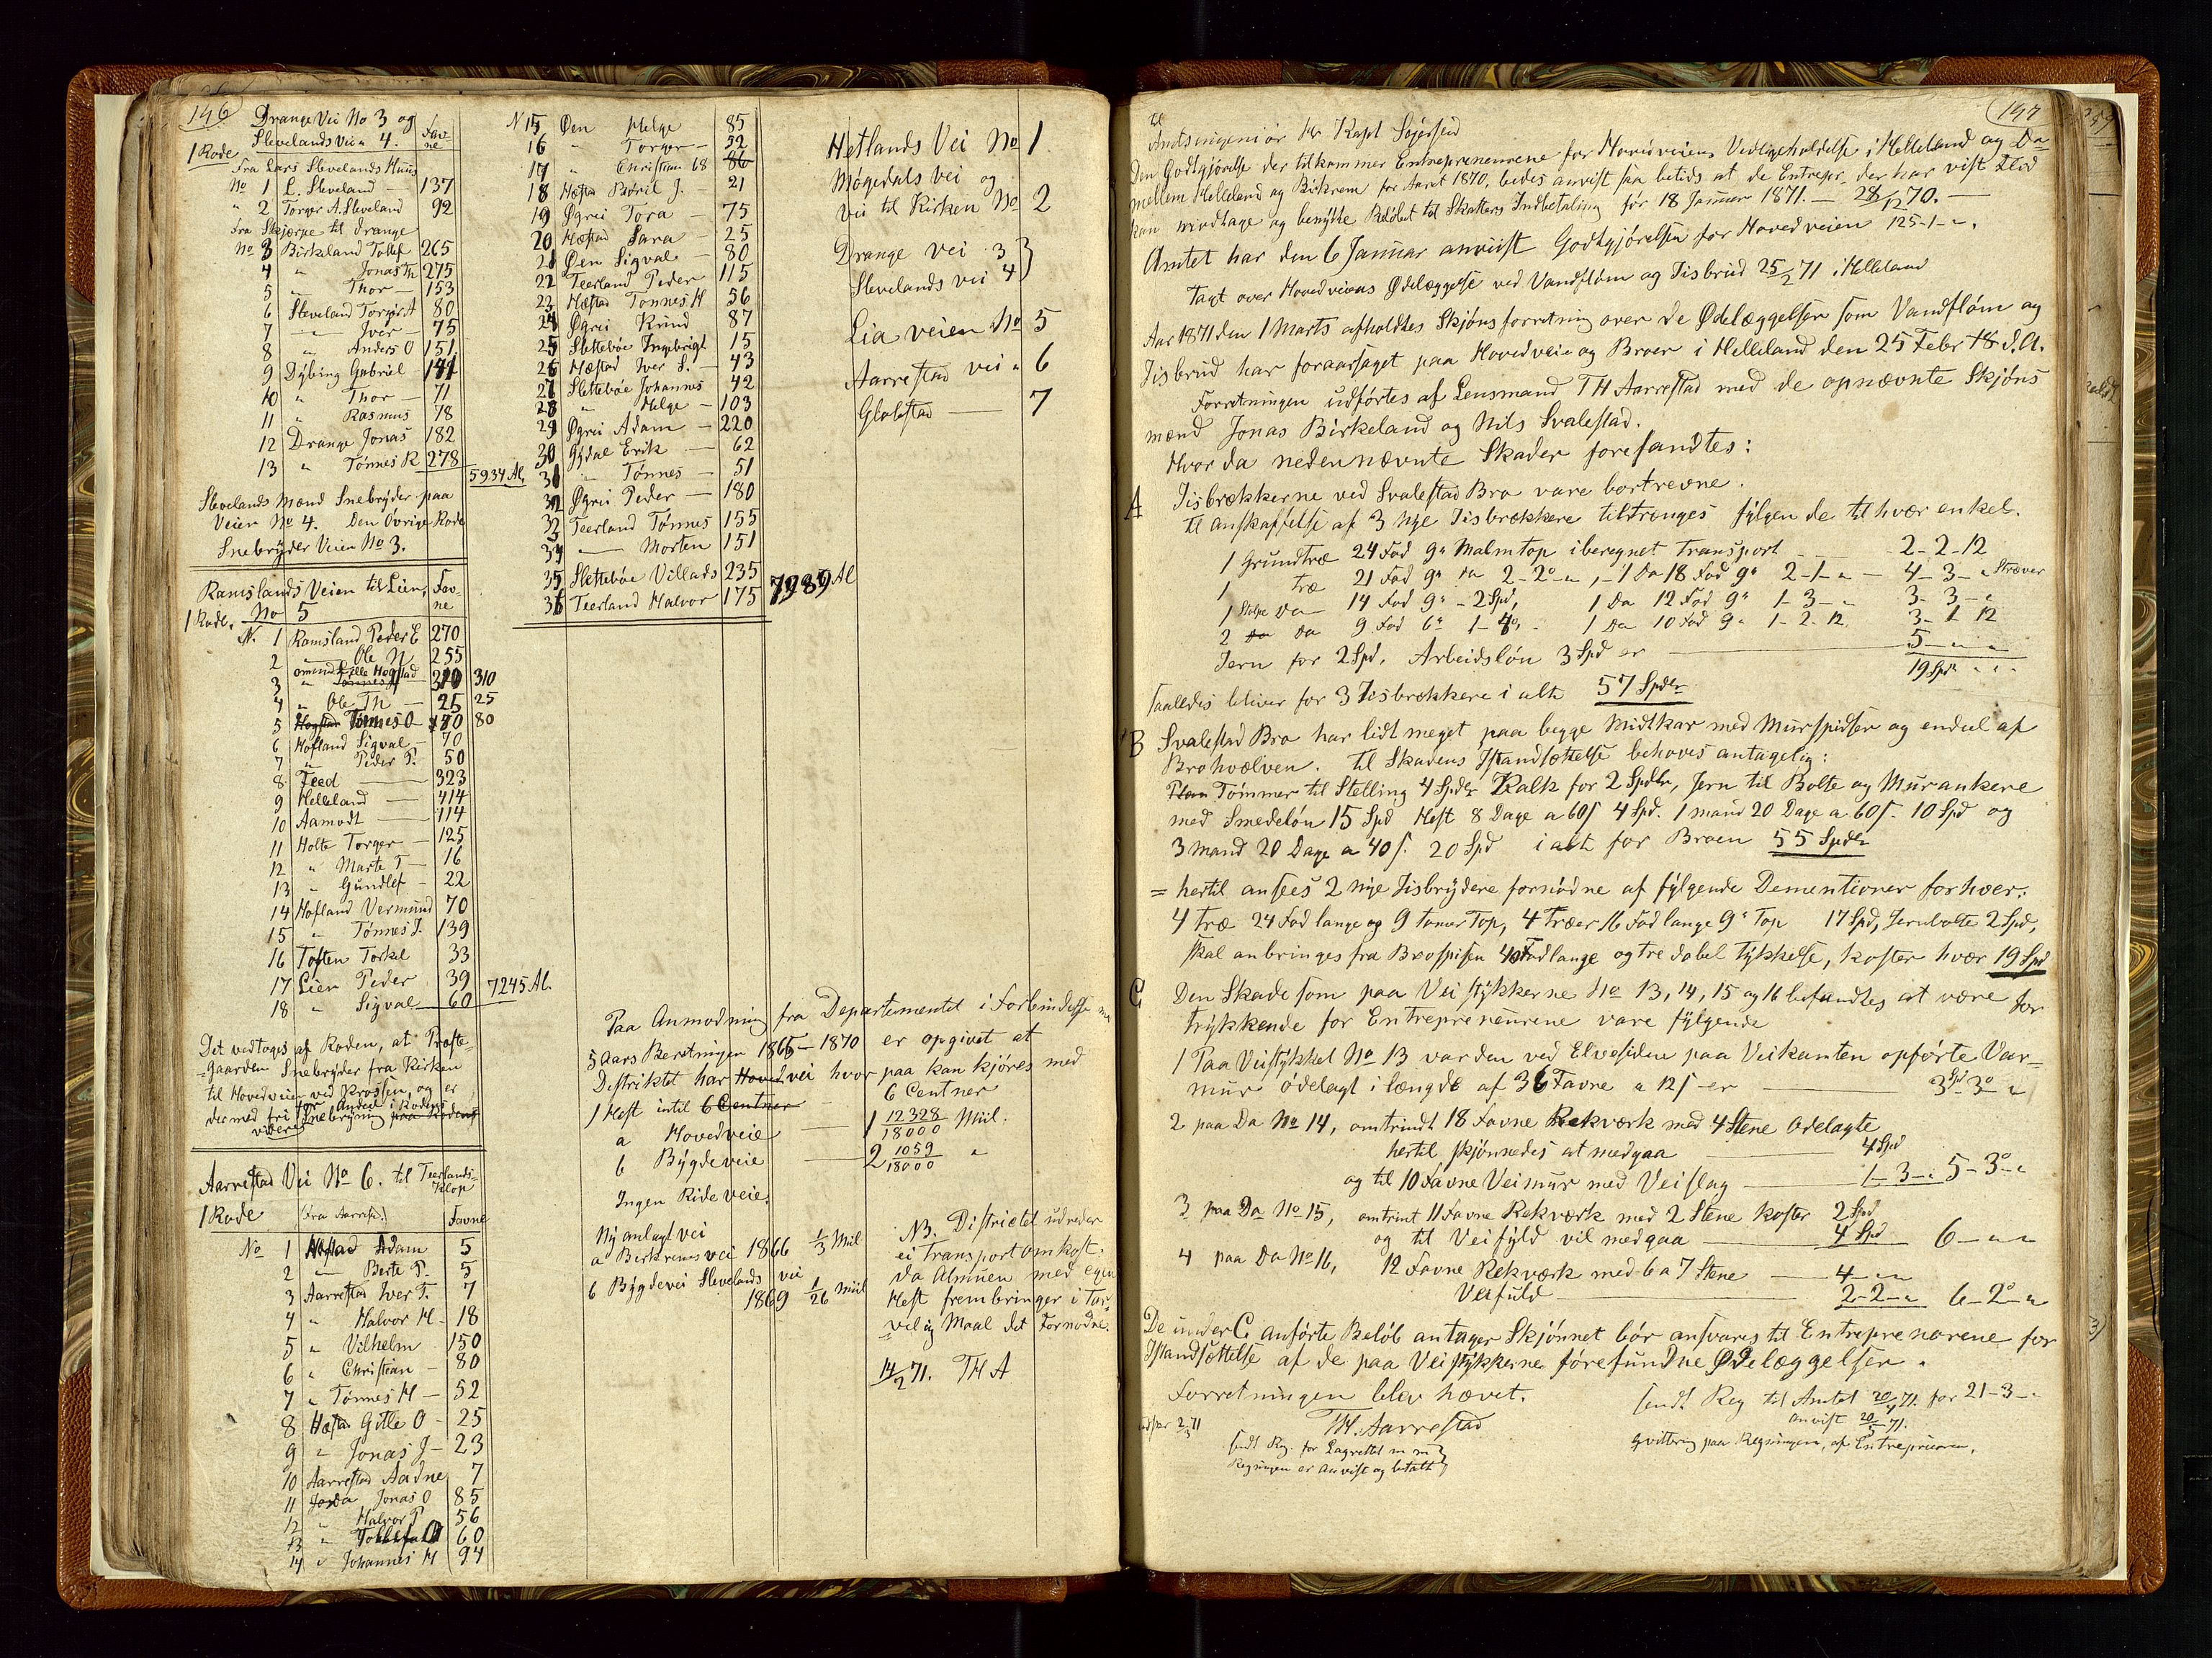 146
Drange Vei No 3 og
Slevelands Vei " 4. Fav-
ne
1 Rode
Fra Lars Slevelands Huus
No 1 L. Sleveland — 137
" 2 Torger A. Sleveland 92
Fra Skjerpe til Drange
No 3 Birkeland Tollef 265
4 " Jonas Th 275
5 " Thor — 153
6 Sleveland Torger A 80
7 " Iver — 75
8 " Anders O 151
9 Dybing Gabriel 141
10 " Thor — 71
11 " Rasmus 78
12 Drange Jonas 182
13 " Tönnes R 278
5934 Al.
Slevelands Mænd Snebryder paa
Veien No 4. Den Övrige Rode
Snebryder Veien No 3.
Ramslands Veien til Lien, Fav-
ne
1 Rode. No 5
N. 1 Ramsland Peder E 270
2 — Ole N 255
3 " omend Lille Hogstad 310 310
4 " Ole Th — 25 25
5 Hogstad Tönnes O — 80
6 Hofland Sigval — 70
7 " Peder P. 50
8 Feed — 323
9 Helleland — 414
10 Aamodt — 114
11 Holte Torger — 125
12 " Marte T — 16
13 " Gundlef — 22
14 Hofland Vermund 70
15 " Tönnes J. 139
16 Toften Torkel 33
17 Lien Peder 39
18 " Sigval 60
7245 Al.
Det vedtoges af Roden, at Præste-
gaarden Snebryder fra Kirken
til Hovedveien ved Krossen, og er
dermed fri for Anden i Rodens
videre Snebrydning paa Rodens
Aarrestad Vei No 6. til Teerlands-
Klop
1 Rode (Fra Aarrest.) Favne
No 1 Hæstad Adam 5
2 — Berte P. 5
3 Aarrestad Iver T. 7
4 " Halvor H — 18
5 " Vilhelm — 150
6 " Christian — 80
7 " Tönnes H — 52
8 Hæstad Gitle O — 25
9 " Jonas J — 23
10 Aarrestad Aadne 7
11 Jonas O 85
12 " Halvor P 56
13 " Tollef 60
14 " Johannes H 94
N 15 Öen Helge 85
16 " Torger — 52
17 " Christian 68 86
18 Hæstad Pedril J. — 21
19 Øgrei Tora — 75
20 Hæstad Sara — 25
21 Øen Sigval — 80
22 Teerland Peder 115
23 Hæstad Tönnes H 56
24 Øgrei Knud 87
25 Slettebøe Ingebrigt 15
26 Hæstad Iver S. — 43
27 Slettebøe Johannes 42
28 " Helge — 103
29 Øgrei Adam — 220
30 Gydal Erik — 62
31 " Tønnes — 51
32 Øgrei Peder — 180
33 Teerland Tønnes 155
34 — Morten 151
35 Slettebøe Villads 235
36 Teerland Halvor 175
7989 Al
Hetlands Vei No 1.
Møgedals vei og
vei til Kirken No 2
Drange vei 3
Slevelands vei 4
Lia veien No 5
Aarrestad vei " 6
Globestad — 7
Paa Anmodning fra Departementet i Forbindelse
5 Aars Beretningen 1866 — 1870 er opgivet at
Distriktet har Hoved vei hvor paa kan kjøres med
1 Hest indtil 6 Centner 6 Centner
a Hovedveie — 1 12328/18000 Miil.
b Bygdeveie — 2 1059/18000 "
Ingen Rideveie.
Ny anlagt vei
a Birkrems vei 1866 1/3 Miil
b Bygdevei Slevelands vei
1869 1/26 Miil
NB. Districtet udreder
ei Transportomkost:
da Almuen med egen
Hest frembringer i Tar-
velig Maal det Fornødne.
14/2 71. TH A
147
Til
Amtsingeniör Hr Kapt
Den Godtgjørelse der tilkommer Entreprenneurene for Hovedveiens Vedligeholdelse i Helleland og Da
mellem Helleland og Birkrem for Aaret 1870, bedes anvist saa betids at de Entrepr. der har vist Flid
kan modtage og benytte Beløbet til Skatters Indbetaling för 18 Januar 1871. — 28/12 70. —
Amtet har den 6 Januar anviist Godtgjørelsen for Hovedveien 125-1-".
Taxt over Hovedveiens Ødelæggelse ved Vandfløm og Iisbrud 25/2 71 i Helleland
Aar 1871 den 1 Marts afholdtes Skjønsforretning over de Ødelæggelser som Vandfløm og
Iisbrud har foraarsaget paa Hovedveie og Broer i Helleland den 25 Febr d. A.
Forretningen udförtes af Lensmand TH Aarrestad med de opnævnte Skjöns
mænd Jonas Birkeland og Nils Svalestad.
Hvor da nedennævnte Skader forefandtes:
A Iisbrækkerne ved Svalestad Bro vare bortrevne.
til anskaffelse af 3 nye Iisbrækkere tiltrænges følgende til hvær enkel.
1 Grundtræ 24 Fod 9" Malmtop iberegnet Transport — 2-2-12
1 træ 21 Fod 9" da 2-2-", 1 da 18 Fod 9" 2-1-" — 4-3-" Stræver
1 Stolpe Da 14 Fod 9" - 2 Spd, 1 Da 12 Fod 9" 1-3-" 3-3-"
2 Da 9 Fod 6" 1-4, 1 Da 10 Fod 9" 1-2-12 3-1-12
Jern for 2 Spd. Arbeidsløn 3 Spd er — 5 " "
19 Spd " "
saalledes bliver for 3 Iisbrækkere i alt 57 Spdlr
B Svalestad Bro har lidt meget paa begge Midtkar med Murspidser og endeel af
Brohvælven. til Skadens Istandsættelse behoves antagelig:
Tömmer til Stelling 4 Spdlr Kalk for 2 Spdlr, Jern til Bolte og Murankere
med Smedeløn 15 Spd Hest 8 Dage a 60 s 4 Spd. 1 mand 20 Dage a 60 s. 10 Spd og
3 mand 20 Dage a 40 s. 20 Spd i alt for Broen 55 Spdlr
= hertil ansees 2 nye Iisbrydere fornødne af følgende Dementioner for hver:
4 Træ 24 Fod lange og 9 tomer Top, 4 Træer 16 Fod lange 9" Top 17 Spd, Jernbolte 2 Spd,
skal anbringes fra Brospisen 40 Fod lange og tre dobel tykkelse, koster hvær 19 Spd
C Den Skade som paa Vei stykkerne No 13, 14, 15 og 16 befandtes at være for
trykkende for Entreprenenrene vare følgende
1 Paa Veistykket No 13 var den ved Elvesiden paa Veikanten opførte Var-
mur ödelagt i længde af 36 Favne a 12 s er — 3 Spd 3 "
2 paa Da No 14, omtrindt 18 Favne Rekværk med 4 Stene Ødelagte
hertil skjønnedes at medgaa — 4 Spd
og til 10 Favne Veimur med Veislag — 1-3-" 5-3-"
3 paa Da No 15, omtrint 11 Favne Rekværk med 2 Stene koster 2 Spd
og til Veifyld vil medgaa — 4 Spd 6-"-"
4 paa Da No 16, 12 Favne Rekværk med 6 a 7 Stene — 4-"-"
Veifuld — 2-2-" 6-2-"
De under C anførte Beløb antager Skjønnet bør ansvares til Entreprenørene for
Istandsættelse af de paa Veistykkerne forefundne Ødelæggelser.
Forretningen blev hævet.
TH. Aarrestad
sendt Reg. for Lagrettet m m
Regningen er anvist og betalt
sendt Reg til Amtet 20/4 71. for 21-3-"
anvist 20/5 71.
Qvittring paa Regningen, af